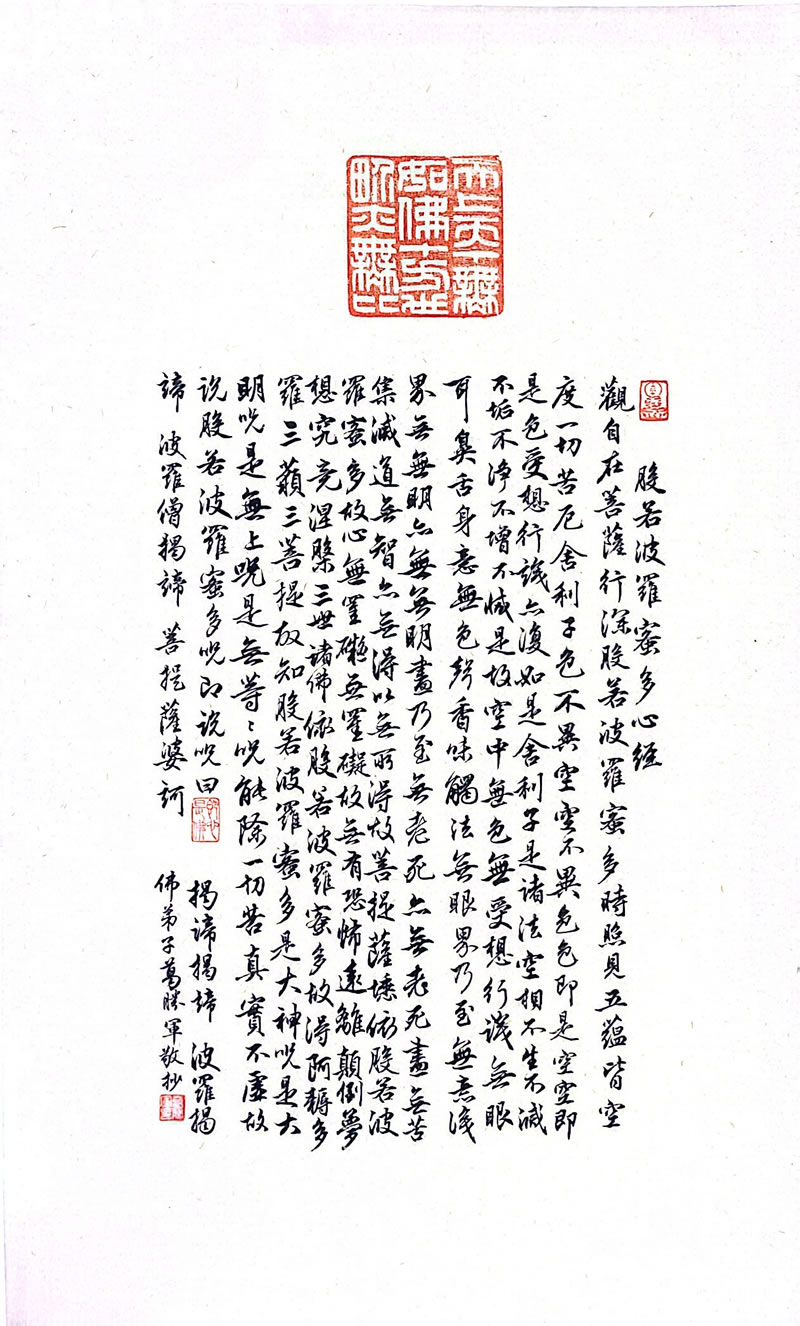 天上天下無
如佛十方世
界亦無比
般若波羅蜜多心經
觀自在菩薩行深般若波羅蜜多時照見五蘊皆空
度一切苦厄舍利子色不異空空不異色色即是空空即
是色受想行識亦復如是舍利子是諸法空相不生不滅
不垢不淨不增不減是故空中無色無受想行識無眼
耳鼻舌身意無色聲香味觸法無眼界乃至無意識
界無無明亦無無明盡乃至無老死亦無老死盡無苦
集滅道無智亦無得以無所得故菩提薩埵依般若波
羅蜜多故心無罣礙無罣礙故無有恐怖遠離顛倒夢
想究竟涅槃三世諸佛依般若波羅蜜多故得阿耨多
羅三藐三菩提故知般若波羅蜜多是大神咒是大
明咒是無上咒是無等〻咒能除一切苦真實不虛故
說般若波羅蜜多咒即說咒曰 揭諦揭諦 波羅揭
諦 波羅僧揭諦 菩提薩婆訶
佛弟子葛勝軍敬抄